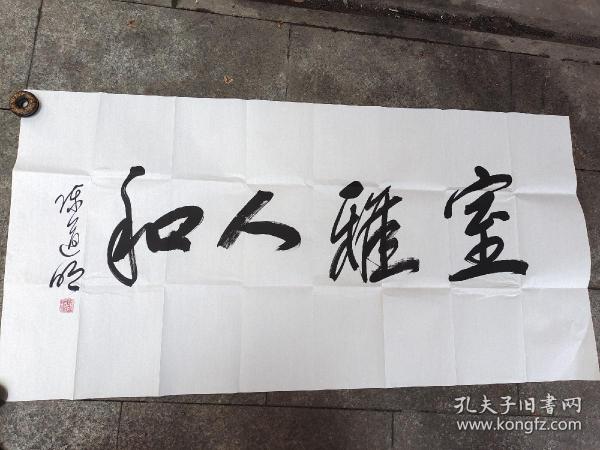 室雅人和
陈道明
孔夫子旧书网
www.kongfz.com